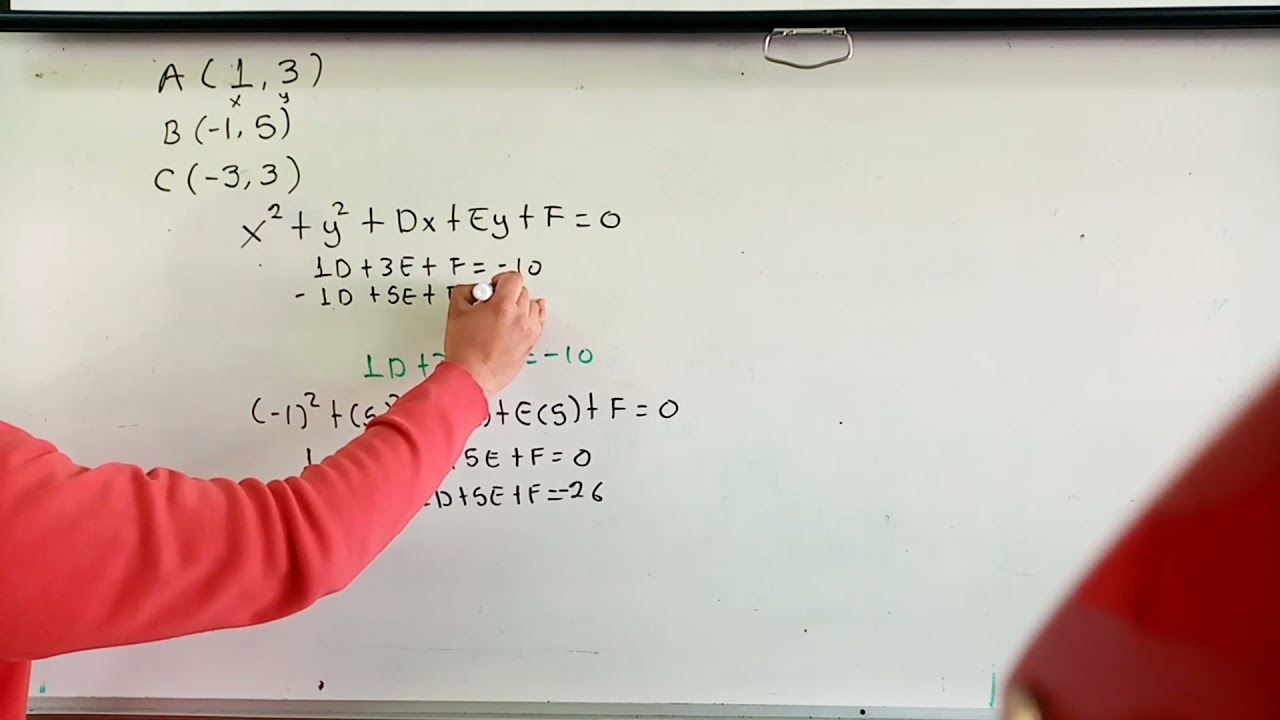 A (1, 3)
x y
B (-1, 5)
C (-3, 3)
x² + y² + Dx + Ey + F = 0
1D + 3E + F = -10
- 1D + 5E +
1D + = -10
(-1)² + (5)² + E(5) + F = 0
5E + F = 0
D + 5E + F = -26